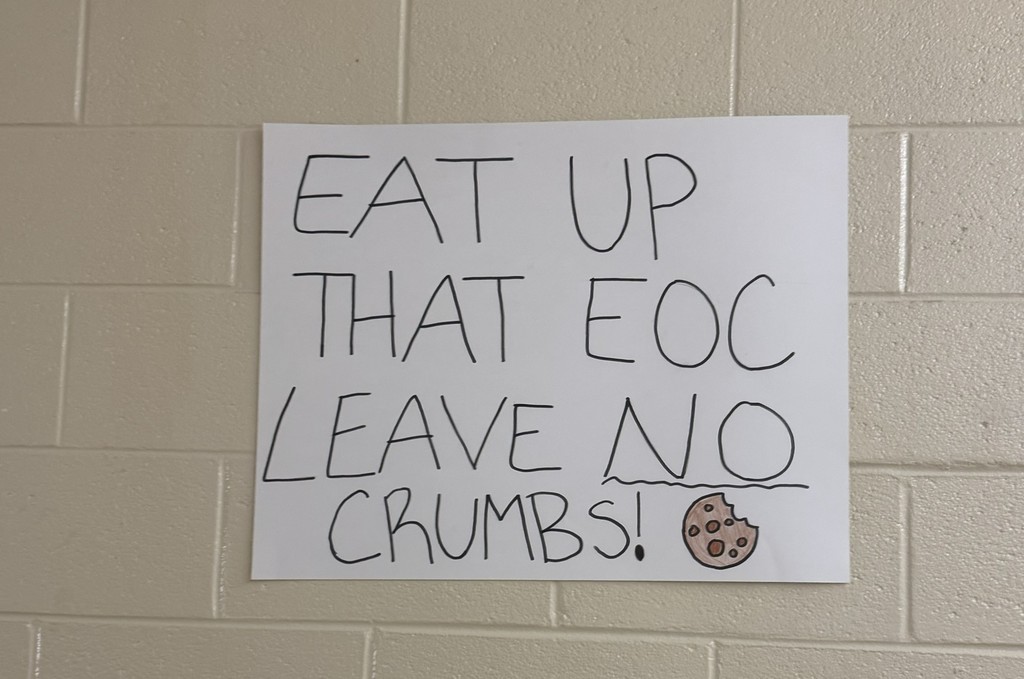 EAT UP
THAT EOC
LEAVE NO
CRUMBS!